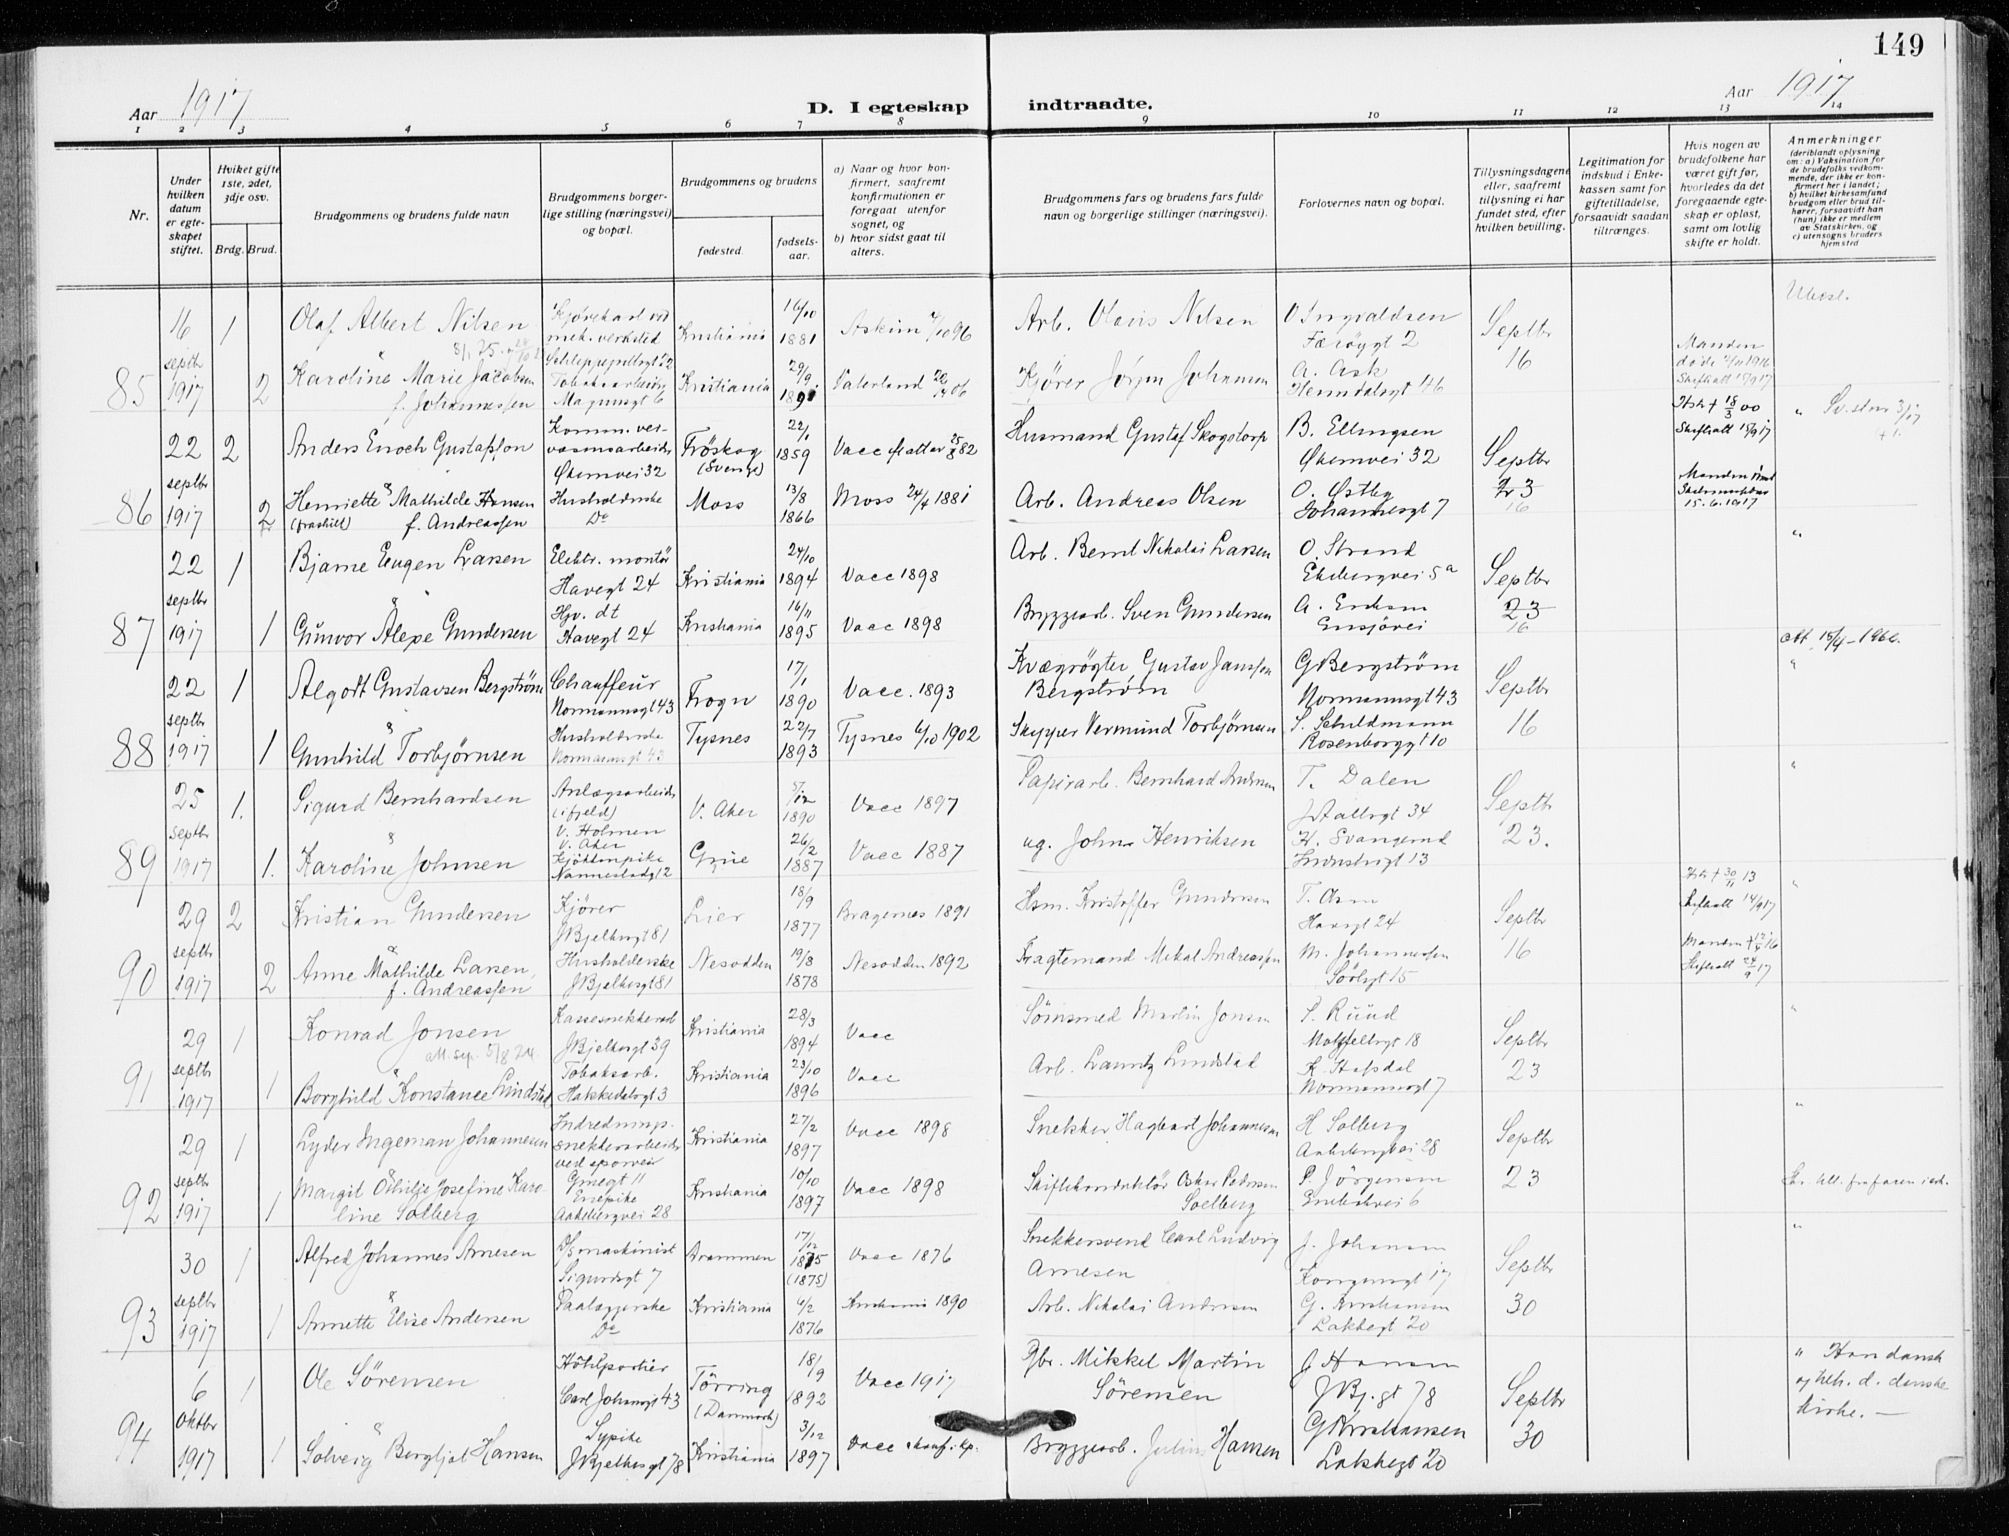 149
Aar 1917
D. I egteskap indtraadte.
Aar 1917
1 2 3 4 5 6 7 8 9 10 11 12 13 14
Nr.
Under hvilken datum er egteskapet stiftet.
Hviket gifte 1ste, 2det, 3dje osv.
Brdg. Brud.
Brudgommens og brudens fulde navn
Brudgommens borgerlige stilling (næringsvei) og bopæl.
Brudgommens og brudens
fødested.
fødselsaar.
a) Naar og hvor konfirmert, saafremt konfirmationen er foregaat utenfor sognet, og
b) hvor sidst gaat til alters.
Brudgommens fars og brudens fars fulde navn og borgerlige stillinger (næringsvei).
Forlovernes navn og bopæl.
Tillysningsdagene eller, saafremt tillysning ei har fundet sted, efter hvilken bevilling.
Legitimation for indskud i Enkekassen samt for giftetilladelse, forsaavidt saadan tiltrænges.
Hvis nogen av brudefolkene har været gift før, hvorledes da det foregaaende egteskap er opløst, samt om lovlig skifte er holdt.
Anmerkninger
(deriblandt oplysning om: a) Vaksination for de brudefolks vedkommende, der ikke er konfirmert her i landet; b) hvilket kirkesamfund brudgom eller brud tilhører, forsaavidt han (hun) ikke er medlem av Statskirken, og c) utensogns bruders hjemsted
85 16 septbr 1917 1 Olaf Albert Nilsen Kjørekarl ved mek. verksted 22 Kristiania 16/10 1881 Askim 4/10 96 Arb. Olavis Nilsen O Ingvaldsen Færøygt 2 Septbr 16
2 Karoline Marie Jacobsen f. Johannessen Tobaksarbeider Magnusgt 6 Kristiania 29/9 Vaterland Kjører Jørgen Johansen A. Ask Heimdalsgt 46 Manden døde
86 22 septbr 1917 2 Anders Enoch Gustafson Komm. veivæsensarbeider Økernvei 32 Fröskog (Sverige) 22/1 1859 Vacc Husmand Gustaf Skogstorp B. Ellingsen Økernvei 32 Septbr 23 16
2 Henriette Mathilde Hansen (fraskilt) f. Andreassen Husholderske Do Moss 13/8 1866 Moss 24/4 1881 Arb. Andreas Olsen O. Østby Johannesgt 7 15.6.1917
87 22 septbr 1917 1 Bjarne Eugen Larsen Elektr. montör Havegt 24 Kristiania 24/10 1894 Vacc 1898 Arb. Bernt Nikolai Larsen O. Strand Ekebergvei 5a Septbr 23 16
1 Gunvor Alexe Gundersen Hjv. dt Havegt 24 Kristiania 16/11 1895 Vacc 1898 Bryggearb. Sven Gundersen A. Eriksen Ensjøvei
88 22 septbr 1917 1 Algodt Gustavsen Bergstrøm Chauffeur Normannsgt 43 Frogn 17/1 1890 Vacc. 1893 Kvægrøgter Gustav Janssen Bergstrøm G Bergström Normannsgt 43 Septbr 16
1 Gunhild Torbjørnsen Husholderske Normannsgt 43 Tysnes 22/7 1893 Tysnes 6/10 1902 Skipper Vermund Torbjørnsen S. Schuldmann Rosenborggt 10
89 25 septbr 1917 1. Sigurd Bernhardsen Anlægsarbeider (i fjeld) V. Holmen V. Aker V. Aker 5/12 1890 Vacc 1897 Papirarb. Bernhard Andersen T. Dalen J. Aallsgt 34 Septbr 23.
1. Karoline Johnsen Kjøkkenpike Nannestadgt 2 Grue 26/2 1887 Vacc 1887 ug. John Henriksen H. Svangerud Industrigt 13
90 29 septbr 1917 2 Kristian Gundersen Kjører J Bjelkesgt 81 Lier 18/9 1877 Bragernes 1891 Hsm. Kristoffer Gundersen T. Aasen Havegt 24 Septbr 16
2 Anne Mathilde Larsen, f. Andreassen Husholderske J Bjelkesgt 81 Nesodden 19/8 1878 Nesodden 1892 Fragtemand Mikal Andreassen M. Johannessen Sørligt 15
91 29 septbr 1917 1 Konrad Jonsen Kassesnekkerarb J Bjelkesgt 39 Kristiania 28/3 1894 Vacc Martin Jonsen S. Ruud Motzfeldtsgt 18 Septbr 23
1 Borghild Konstance Lindstad Tobaksarb. Hakkedalsgt 3 Kristiania 23/10 1896 Vacc Arb. Lauritz Lindstad K. Stafsdal Normannsgt 7
92 29 septbr 1917 1 Lyder Ingeman Johannesen Indrednings snekkerarbeider ved sporvei Gruegt 11 Kristiania 27/2 1897 Vacc 1898 Snekker Hagbart Johannesen H Solberg Aakebergvei 28 Septbr 23
1 Margit Othilje Josefine Karoline Solberg Enepike Aakebergvei 28 Kristiania 10/10 1897 Vacc 1898 Skiftekonduktör Oskar Pedersen Soelberg P. Jörgensen
93 30 septbr 1917 1 Alfred Johannes Arnesen D/S maskinist Sigurdsgt 7 Drammen 17/12 1875 (1875) Vacc 1876 Snekkersvend Carl Ludvig Arnesen J. Johansen Kongensgt 17 Septbr 30
1 Annette Elise Andersen Paalæggerske Do Kristiania 6/2 1876 Kristiania 1890 Arb. Nikolai Andersen G. Kristiansen Lakkegt 20
94 6 Oktbr 1917 1 Ole Sörensen Hötelportier Carl Johansgt 43 Törring (Danmark) 18/9 1892 Vacc 1917 Gbr. Mikkel Martin Sörensen J Hansen J Bj.gt 78 Septbr 30 " Han dansk og tilh. d. danske kirke. —
1 Solveig Bergljot Hansen Sypike J Bjelkesgt 78 Kristiania 3/12 1897 Vacc Bryggearb. Julius Hansen G Kristiansen Lakkegt 20